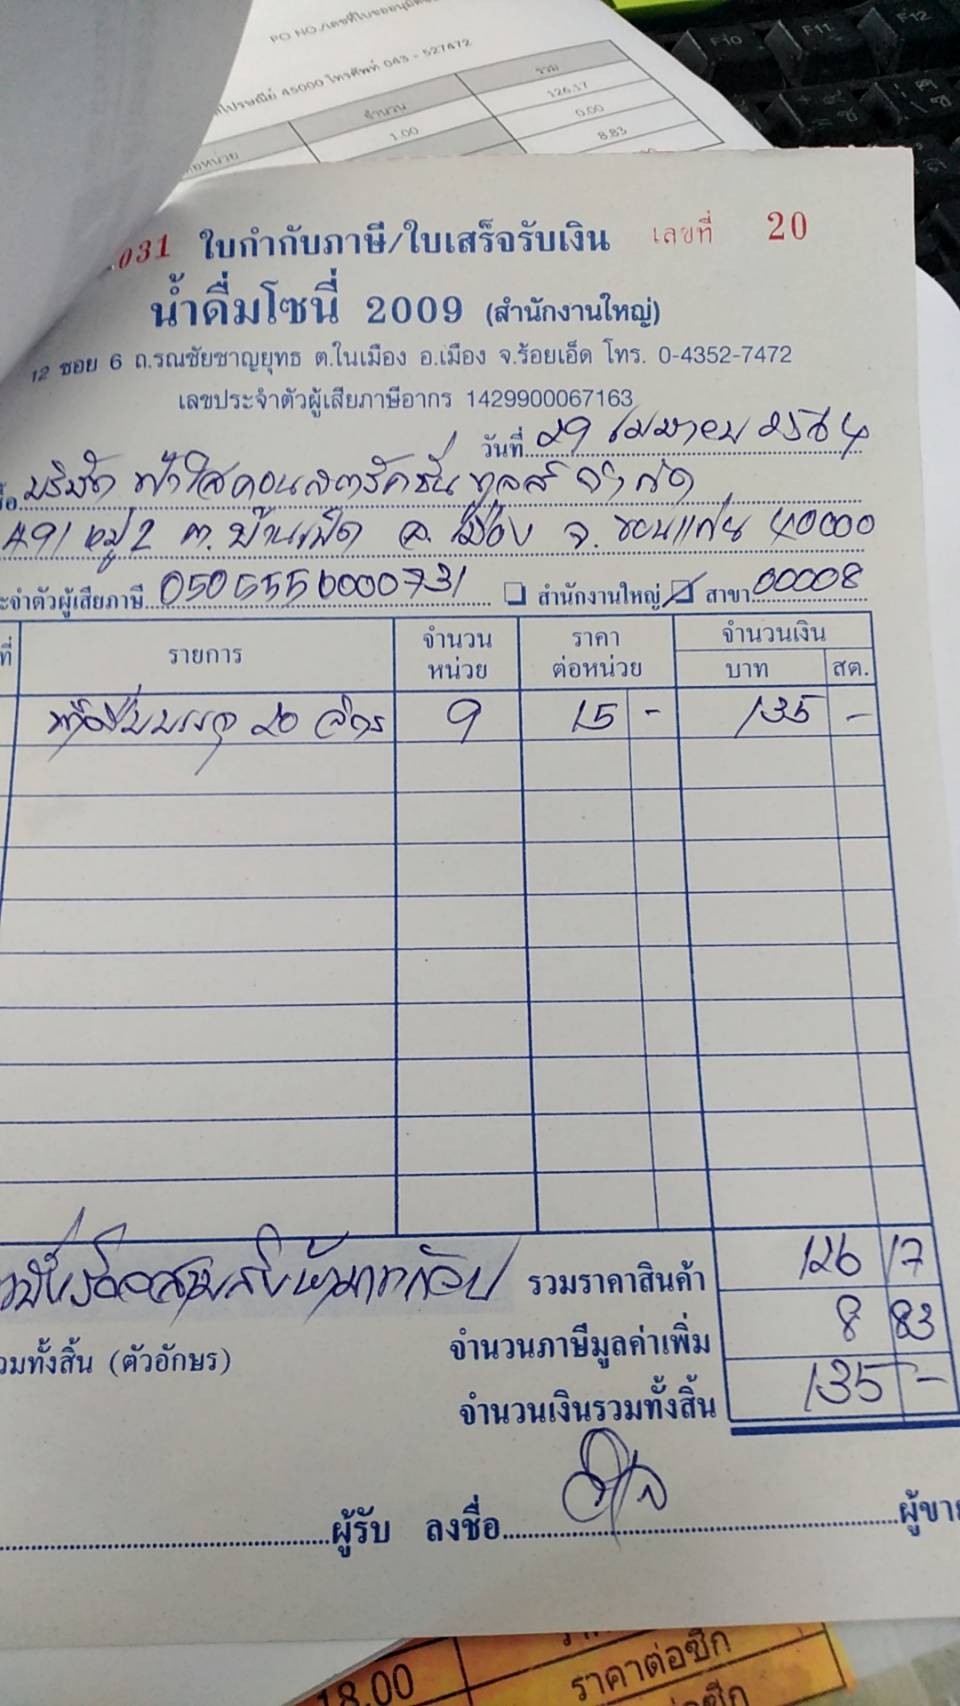 PO NO./เลขที่ใบขออนุมัติ
ไปรษณีย์ 45000 โทรศัพท์ 043 - 527472
หน่วย จำนวน รวม
1.00 126.17
0.00
8.83
031 ใบกำกับภาษี/ใบเสร็จรับเงิน เลขที่ 20
น้ำดื่มโซนี่ 2009 (สำนักงานใหญ่)
12 ซอย 6 ถ.รณชัยชาญยุทธ ต.ในเมือง อ.เมือง จ.ร้อยเอ็ด โทร. 0-4352-7472
เลขประจำตัวผู้เสียภาษีอากร 1429900067163
วันที่ 29 เมษายน 2564
บริษัท ฟ้าใสคอนสตรัคชั่น ทูลส์ จำกัด
491 หมู่ 2 ต. บ้านเป็ด อ. เมือง จ. ขอนแก่น 40000
ะจำตัวผู้เสียภาษี 0505556000731 สำนักงานใหญ่ สาขา 00008
ที่ รายการ จำนวน หน่วย ราคา ต่อหน่วย จำนวนเงิน
บาท สต.
20 ลิตร 9 15 - 135 -
รวมราคาสินค้า 126 17
วมทั้งสิ้น (ตัวอักษร) จำนวนภาษีมูลค่าเพิ่ม 8 83
จำนวนเงินรวมทั้งสิ้น 135 -
ผู้รับ ลงชื่อ ผู้ขาย
18.00
ราคาต่อซีก